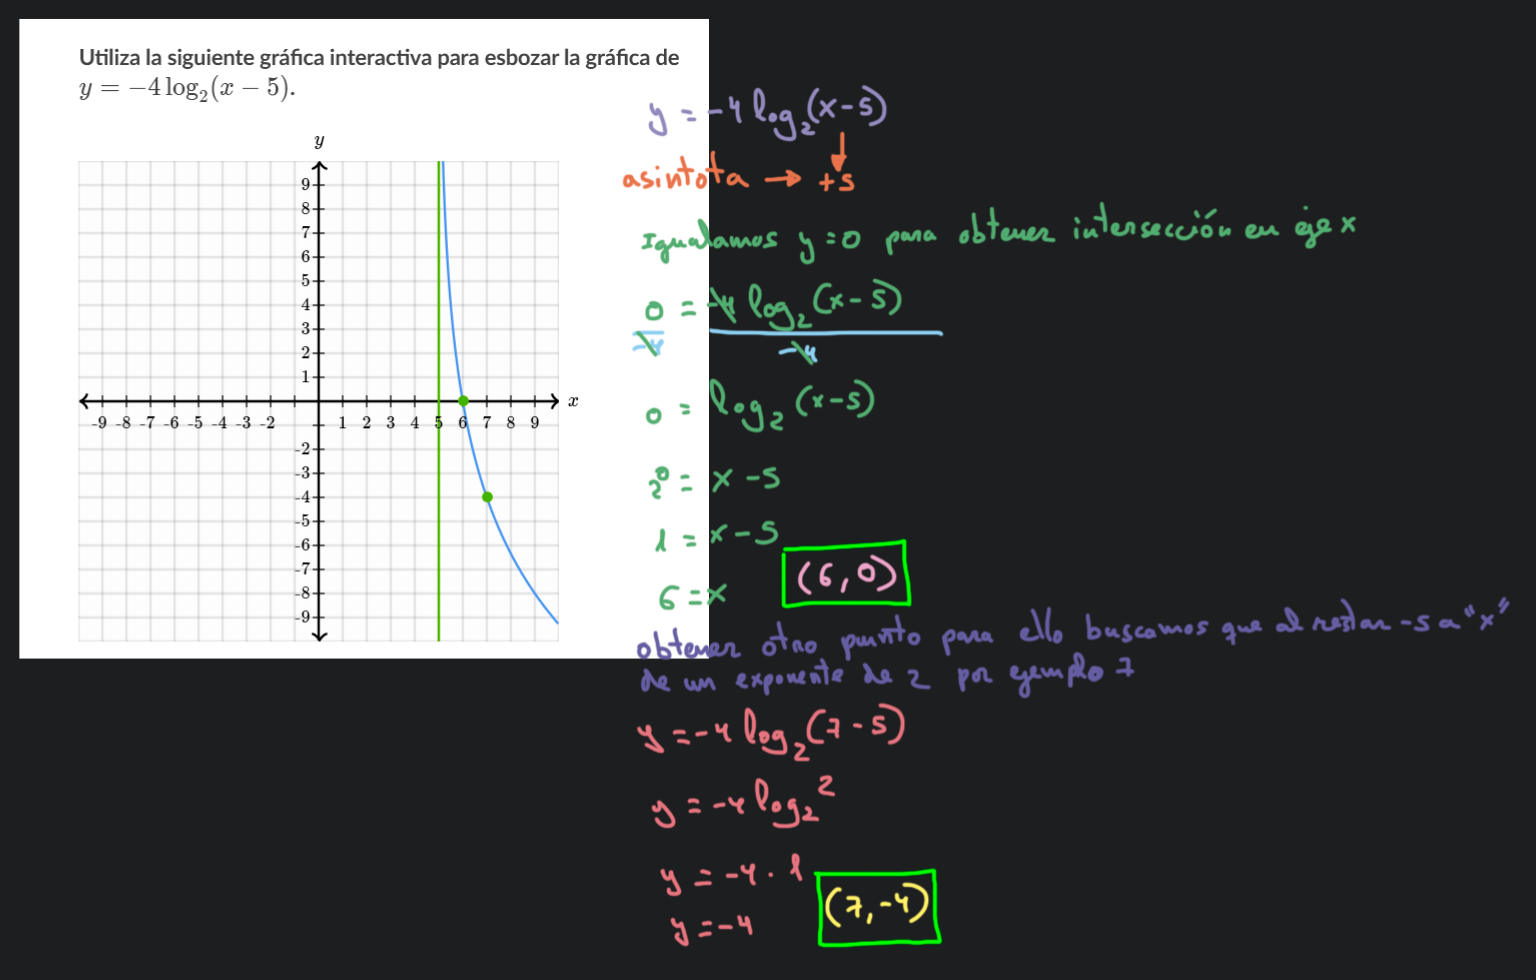 Utiliza la siguiente gráfica interactiva para esbozar la gráfica de
y = −4 log₂(x − 5).
y
9
8
7
6
5
4
3
2
1
x
-9 -8 -7 -6 -5 -4 -3 -2 1 2 3 4 5 6 7 8 9
-2
-3
-4
-5
-6
-7
-8
-9
y = -4 log₂(x-5)
asintota → +5
Igualamos y=0 para obtener intersección en eje x
0 = -4 log₂(x-5)
-4 -4
0 = log₂(x-5)
2⁰ = x-5
1 = x-5
6 = x (6,0)
obtener otro punto para ello buscamos que al restar -5 a "x"
de un exponente de 2 por ejemplo 7
y = -4 log₂(7-5)
y = -4 log₂ 2
y = -4 · 1
y = -4 (7,-4)